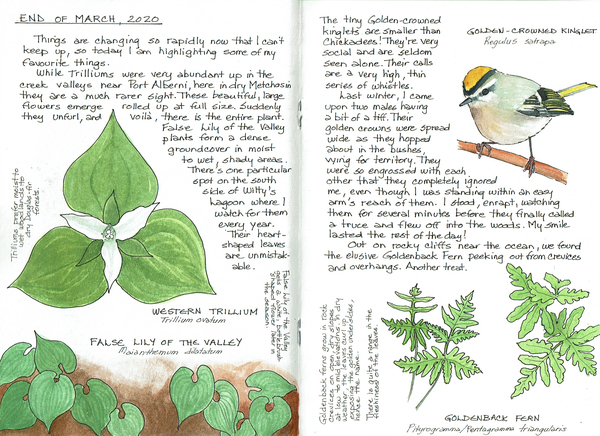 END OF MARCH, 2020
Things are changing so rapidly now that I can't
keep up, so today I am highlighting some of my
favourite things.
While Trilliums were very abundant up in the
creek valleys near Port Alberni, here in dry Metchosin
they are a much rarer sight. These beautiful, large
flowers emerge rolled up at full size. Suddenly
they unfurl, and voilà, there is the entire plant.
False Lily of the Valley
plants form a dense
groundcover in moist
to wet, shady areas.
There's one particular
spot on the south
side of Witty's
Lagoon where I
watch for them
every year.
Their heart-
shaped leaves
are unmistak-
able.
Trilliums prefer moist to
wet woodlands to
dry Douglas-fir
forests.
WESTERN TRILLIUM
Trillium ovatum
False Lily of the Valley
the season.
FALSE LILY OF THE VALLEY
Maianthemum dilatatum
The tiny Golden-crowned
kinglets are smaller than
Chickadees! They're very
social and are seldom
seen alone. Their calls
are a very high, thin
series of whistles.
Last winter, I came
upon two males having
a bit of a tiff. Their
golden crowns were spread
wide as they hopped
about in the bushes,
vying for territory. They
were so engrossed with each
other that they completely ignored
me, even though I was standing within an easy
arm's reach of them. I stood, enrapt, watching
them for several minutes before they finally called
a truce and flew off into the woods. My smile
lasted the rest of the day!
Out on rocky cliffs near the ocean, we found
the elusive Goldenback Fern peeking out from crevices
and overhangs. Another treat.
GOLDEN-CROWNED KINGLET
Regulus satrapa
Goldenback ferns grow in rock
crevices on open, dry slopes
at low to mid elevations. In dry
weather, the leaves curl up,
exposing the golden undersides,
hence the name.
There is quite a range in the
of the leaves.
GOLDENBACK FERN
Pityrogramma/Pentagramma triangularis